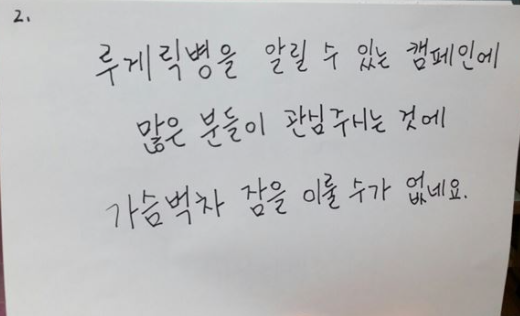 2.
루게릭병을 알릴 수 있는 캠페인에
많은 분들이 관심주시는 것에
가슴벅차 잠을 이룰 수가 없네요.